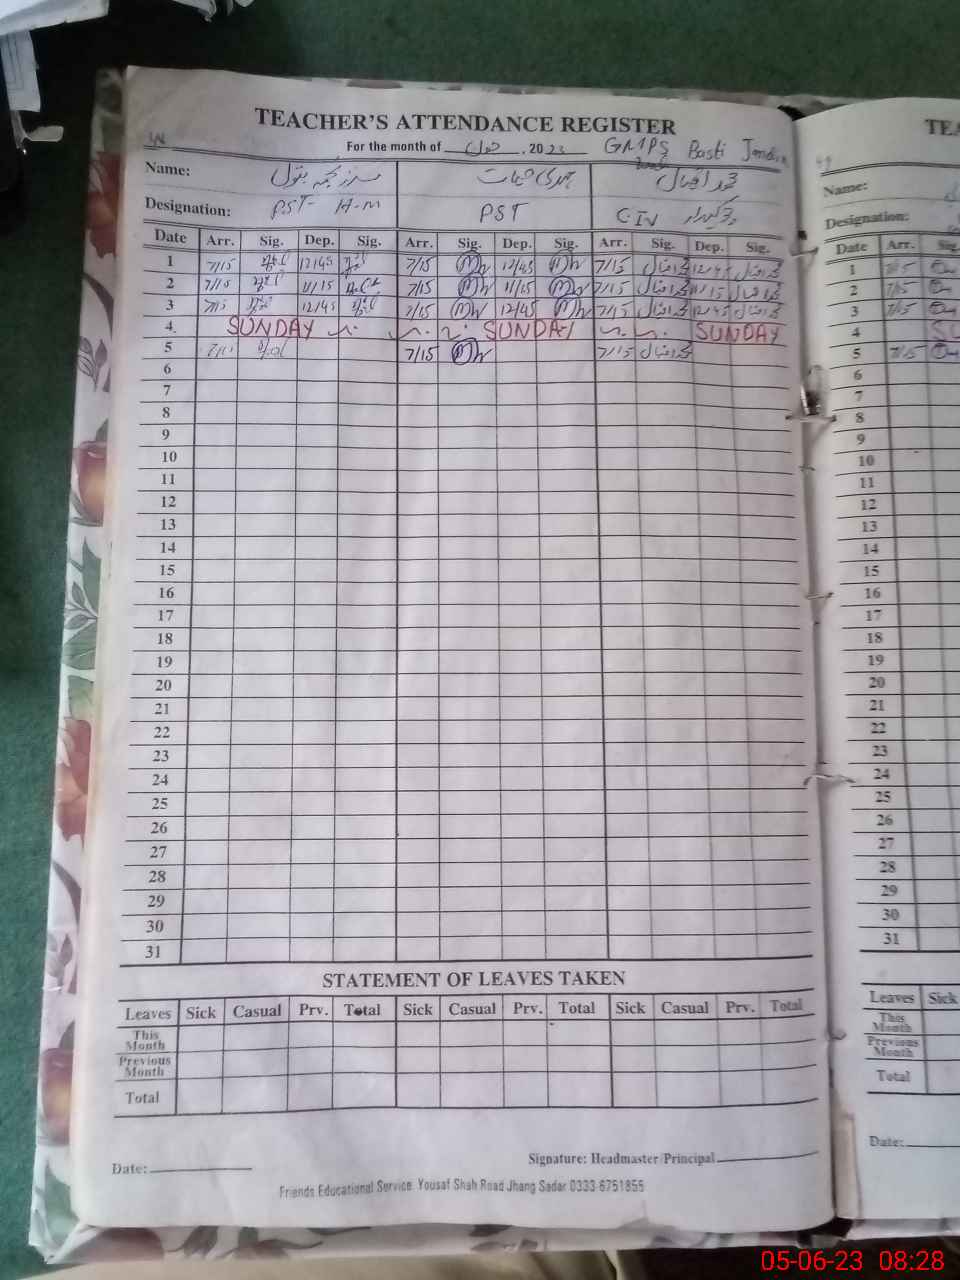 TEACHER'S ATTENDANCE REGISTER
For the month of جون , 2023 GMPS Basti Jandir
Name: مسز نجمہ بتول مہدی حیات محمد اقبال
Designation: PST- H-M PST C-IV چوکیدار
Date Arr. Sig. Dep. Sig. Arr. Sig. Dep. Sig. Arr. Sig. Dep. Sig.
1 7/15 12/45 7/15 12/45 7/15 محمد اقبال 12/45 محمد اقبال
2 7/15 11/15 7/15 11/15 7/15 محمد اقبال 11/15 محمد اقبال
3 7/15 12/45 7/15 12/45 7/15 محمد اقبال 12/45 محمد اقبال
4 SUNDAY SUNDAY SUNDAY
5 7/15 7/15 محمد اقبال
6
7
8
9
10
11
12
13
14
15
16
17
18
19
20
21
22
23
24
25
26
27
28
29
30
31
STATEMENT OF LEAVES TAKEN
Leaves Sick Casual Prv. Total Sick Casual Prv. Total Sick Casual Prv. Total
This Month
Previous Month
Total
Date:
Signature: Headmaster/Principal
Friends Educational Service. Yousaf Shah Road Jhang Sadar 0333-6751855
49
Name:
Designation:
Date Arr.
1 7/15
2 7/15
3 7/15
4
5 7/15
6
7
8
9
10
11
12
13
14
15
16
17
18
19
20
21
22
23
24
25
26
27
28
29
30
31
Leaves Sick
This Month
Previous Month
Total
Date:
05-06-23 08:28